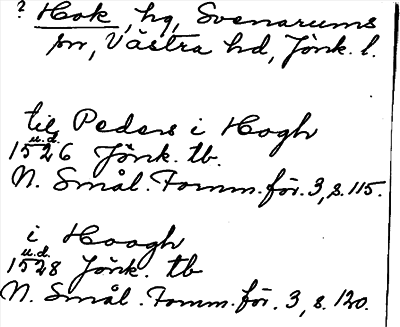 ? Hok, hg, Svenarums
sn, Västra hd, Jönk. l.
till Peders i Hogh
u.d.
1526 Jönk. tb.
N. Smål. Fornm. för. 3, s. 115.
i Hoogh
u.d.
1528 Jönk. tb
N. Smål. Fornm. för. 3, s. 120.